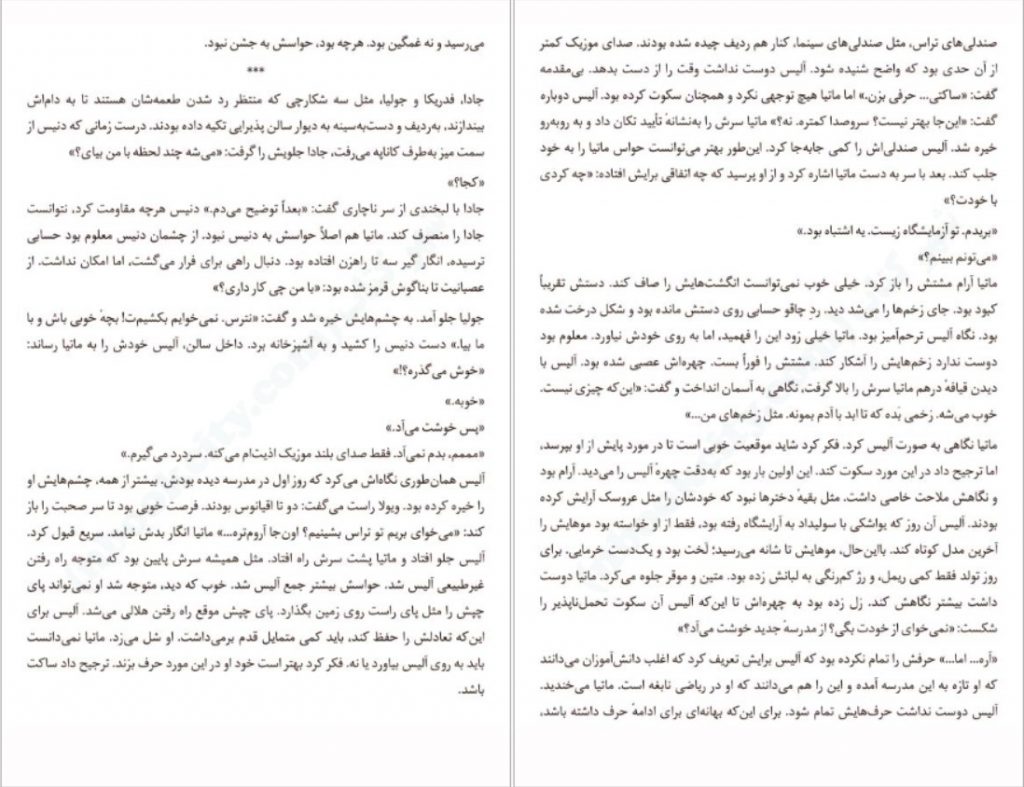 می‌رسید و نه غمگین بود. هرچه بود، حواسش به جشن نبود.
***
جادا، فدریکا و جولیا، مثل سه شکارچی که منتظر رد شدن طعمه‌شان هستند تا به دام‌اش
بیندازند، به‌ردیف و دست‌به‌سینه به دیوار سالن پذیرایی تکیه داده بودند. درست زمانی که دنیس از
سمت میز به‌طرف کاناپه می‌رفت، جادا جلویش را گرفت: «می‌شه چند لحظه با من بیای؟»
«کجا؟»
جادا با لبخندی از سر ناچاری گفت: «بعداً توضیح می‌دم.» دنیس هرچه مقاومت کرد، نتوانست
جادا را منصرف کند. ماتیا هم اصلاً حواسش به دنیس نبود. از چشمان دنیس معلوم بود حسابی
ترسیده، انگار گیر سه تا راهزن افتاده بود. دنبال راهی برای فرار می‌گشت، اما امکان نداشت. از
عصبانیت تا بناگوش قرمز شده بود: «با من چی کار داری؟»
جولیا جلو آمد. به چشم‌هایش خیره شد و گفت: «نترس. نمی‌خوایم بکشیم‌ت! بچهٔ خوبی باش و با
ما بیا.» دست دنیس را کشید و به آشپزخانه برد. داخل سالن، آلیس خودش را به ماتیا رساند:
«خوش می‌گذره؟!»
«خوبه.»
«پس خوشت می‌آد.»
«مممم، بدم نمی‌آد. فقط صدای بلند موزیک اذیت‌ام می‌کنه. سردرد می‌گیرم.»
آلیس همان‌طوری نگاه‌اش می‌کرد که روز اول در مدرسه دیده بودش. بیشتر از همه، چشم‌هایش او
را خیره کرده بود. ویولا راست می‌گفت: دو تا اقیانوس بودند. فرصت خوبی بود تا سر صحبت را باز
کند: «می‌خوای بریم تو تراس بشینیم؟ اون‌جا آروم‌تره...» ماتیا انگار بدش نیامد. سریع قبول کرد.
آلیس جلو افتاد و ماتیا پشت سرش راه افتاد. مثل همیشه سرش پایین بود که متوجه راه رفتن
غیرطبیعی آلیس شد. حواسش بیشتر جمع آلیس شد. خوب که دید، متوجه شد او نمی‌تواند پای
چپش را مثل پای راست روی زمین بگذارد. پای چپش موقع راه رفتن هلالی می‌شد. آلیس برای
این‌که تعادلش را حفظ کند، باید کمی متمایل قدم برمی‌داشت. او شل می‌زد. ماتیا نمی‌دانست
باید به روی آلیس بیاورد یا نه. فکر کرد بهتر است خود او در این مورد حرف بزند. ترجیح داد ساکت
باشد.
صندلی‌های تراس، مثل صندلی‌های سینما، کنار هم ردیف چیده شده بودند. صدای موزیک کمتر
از آن حدی بود که واضح شنیده شود. آلیس دوست نداشت وقت را از دست بدهد. بی‌مقدمه
گفت: «ساکتی... حرفی بزن.» اما ماتیا هیچ توجهی نکرد و همچنان سکوت کرده بود. آلیس دوباره
گفت: «این‌جا بهتر نیست؟ سروصدا کمتره. نه؟» ماتیا سرش را به‌نشانهٔ تأیید تکان داد و به روبه‌رو
خیره شد. آلیس صندلی‌اش را کمی جابه‌جا کرد. این‌طور بهتر می‌توانست حواس ماتیا را به خود
جلب کند. بعد با سر به دست ماتیا اشاره کرد و از او پرسید که چه اتفاقی برایش افتاده: «چه کردی
با خودت؟»
«بریدم. تو آزمایشگاه زیست. یه اشتباه بود.»
«می‌تونم ببینم؟»
ماتیا آرام مشتش را باز کرد. خیلی خوب نمی‌توانست انگشت‌هایش را صاف کند. دستش تقریباً
کبود بود. جای زخم‌ها را می‌شد دید. ردِ چاقو حسابی روی دستش مانده بود و شکل درخت شده
بود. نگاه آلیس ترحم‌آمیز بود. ماتیا خیلی زود این را فهمید، اما به روی خودش نیاورد. معلوم بود
دوست ندارد زخم‌هایش را آشکار کند. مشتش را فوراً بست. چهره‌اش عصبی شده بود. آلیس با
دیدن قیافهٔ درهم ماتیا سرش را بالا گرفت، نگاهی به آسمان انداخت و گفت: «این‌که چیزی نیست.
خوب می‌شه. زخمی بَده که تا ابد با آدم بمونه. مثل زخم‌های من...»
ماتیا نگاهی به صورت آلیس کرد. فکر کرد شاید موقعیت خوبی است تا در مورد پایش از او بپرسد،
اما ترجیح داد در این مورد سکوت کند. این اولین بار بود که به‌دقت چهرهٔ آلیس را می‌دید. آرام بود
و نگاهش ملاحت خاصی داشت. مثل بقیهٔ دخترها نبود که خودشان را مثل عروسک آرایش کرده
بودند. آلیس آن روز که یواشکی با سولیداد به آرایشگاه رفته بود، فقط از او خواسته بود موهایش را
آخرین مدل کوتاه کند. بااین‌حال، موهایش تا شانه می‌رسید؛ لَخت بود و یک‌دست خرمایی. برای
روز تولد فقط کمی ریمل، و رژ کم‌رنگی به لبانش زده بود. متین و موقر جلوه می‌کرد. ماتیا دوست
داشت بیشتر نگاهش کند. زل زده بود به چهره‌اش تا این‌که آلیس آن سکوت تحمل‌ناپذیر را
شکست: «نمی‌خوای از خودت بگی؟ از مدرسهٔ جدید خوشت می‌آد؟»
«آره... اما...» حرفش را تمام نکرده بود که آلیس برایش تعریف کرد که اغلب دانش‌آموزان می‌دانند
که او تازه به این مدرسه آمده و این را هم می‌دانند که او در ریاضی نابغه است. ماتیا می‌خندید.
آلیس دوست نداشت حرف‌هایش تمام شود. برای این‌که بهانه‌ای برای ادامهٔ حرف داشته باشد،